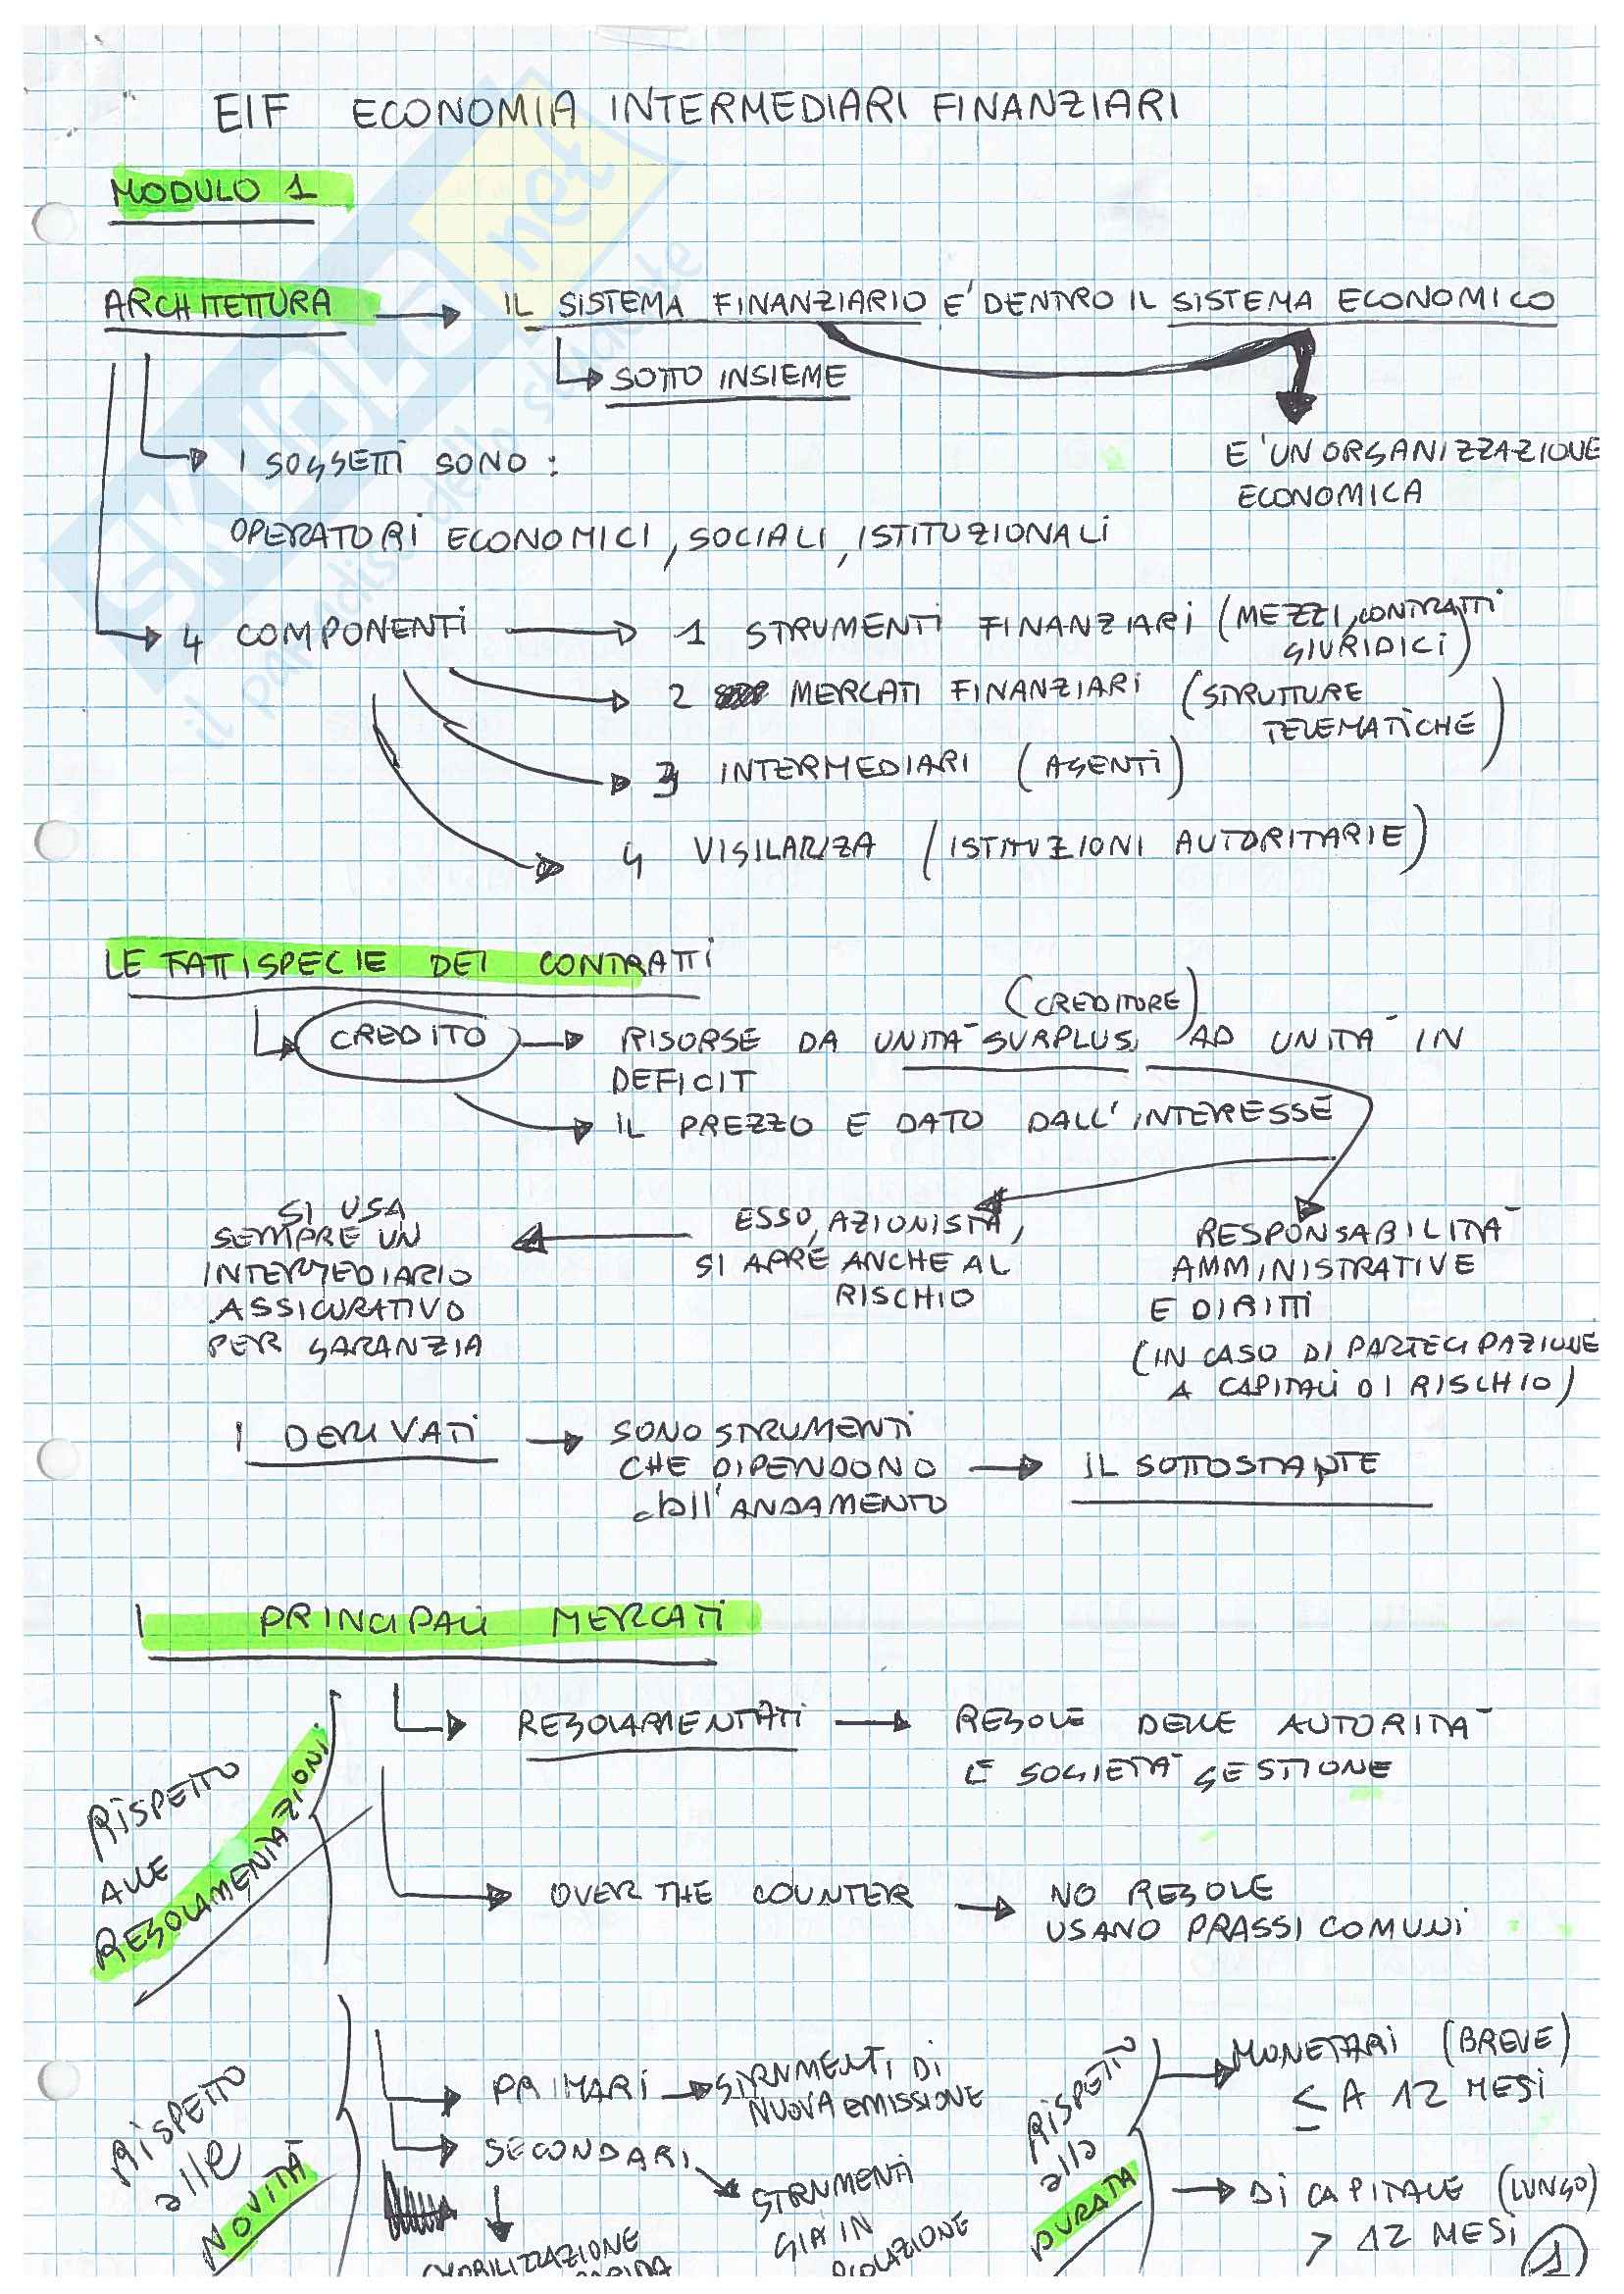 EIF ECONOMIA INTERMEDIARI FINANZIARI
MODULO 1
ARCHITETTURA → IL SISTEMA FINANZIARIO E' DENTRO IL SISTEMA ECONOMICO
SOTTO INSIEME
E' UN ORGANIZZAZIONE
ECONOMICA
I SOGGETTI SONO:
OPERATORI ECONOMICI, SOCIALI, ISTITUZIONALI
4 COMPONENTI → 1 STRUMENTI FINANZIARI (MEZZI, CONTRATTI
GIURIDICI)
2 MERCATI FINANZIARI (STRUTTURE
TELEMATICHE)
3 INTERMEDIARI (AGENTI)
4 VIGILANZA (ISTITUZIONI AUTORITARIE)
LE FATTISPECIE DEI CONTRATTI
(CREDITORE)
CREDITO → RISORSE DA UNITA' SURPLUS, AD UNITA' IN
DEFICIT
IL PREZZO E DATO DALL'INTERESSE
SI USA
SEMPRE UN
INTERMEDIARIO
ASSICURATIVO
PER GARANZIA
ESSO, AZIONISTA,
SI APRE ANCHE AL
RISCHIO
RESPONSABILITA'
AMMINISTRATIVE
E DIRITTI
(IN CASO DI PARTECIPAZIONE
A CAPITALI DI RISCHIO)
I DERIVATI → SONO STRUMENTI
CHE DIPENDONO → IL SOTTOSTANTE
dall'ANDAMENTO
I PRINCIPALI MERCATI
RISPETTO
ALLE
REGOLAMENTAZIONI
REGOLAMENTATI → REGOLE DELLE AUTORITA'
E SOCIETA' GESTIONE
OVER THE COUNTER → NO REGOLE
USANO PRASSI COMUNI
RISPETTO
alle
NOVITÀ
PRIMARI → STRUMENTI DI
NUOVA EMISSIONE
SECONDARI
STRUMENTI
GIA IN
RISPETTO
alla
DURATA
MONETARI (BREVE)
≤ A 12 MESI
DI CAPITALE (LUNGO)
> 12 MESI
1
SKUOLA.net
il paradiso dello studente